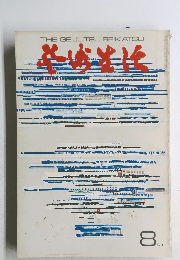 THE GEIJUTSU SEIKATSU
芸術生活
8